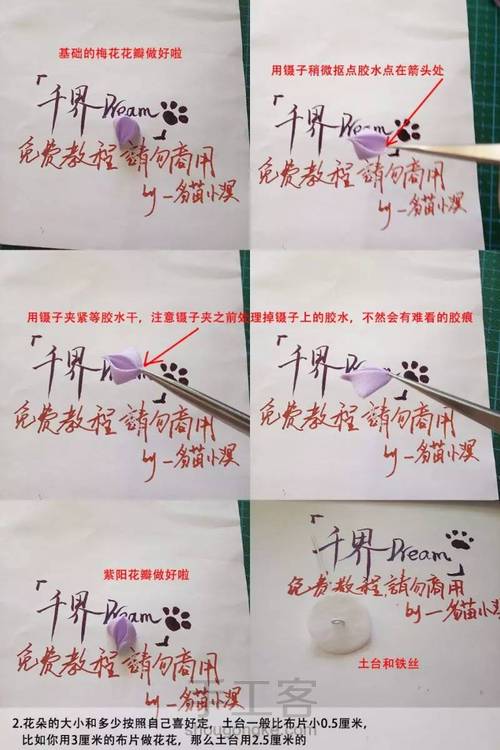 基础的梅花花瓣做好啦
「千界Dream
」
免费教程 請勿商用
by一多苗小淏
用镊子稍微抠点胶水点在箭头处
「千界Dream
」
免费教程 請勿商用
by一多苗小淏
用镊子夹紧等胶水干，注意镊子夹之前处理掉镊子上的胶水，不然会有难看的胶痕
「千界Dream
免费教程 請勿商用
by一多苗小淏
「千界Dream
」
免费教程 請勿商用
by一多苗小淏
紫阳花瓣做好啦
「千界Dream
」
免费教程 請勿商用
by一多苗小淏
「千界Dream
」
免费教程,請勿商用
by一多苗小淏
土台和铁丝
手工客
shougongke.com
2.花朵的大小和多少按照自己喜好定，土台一般比布片小0.5厘米，
比如你用3厘米的布片做花花，那么土台用2.5厘米的